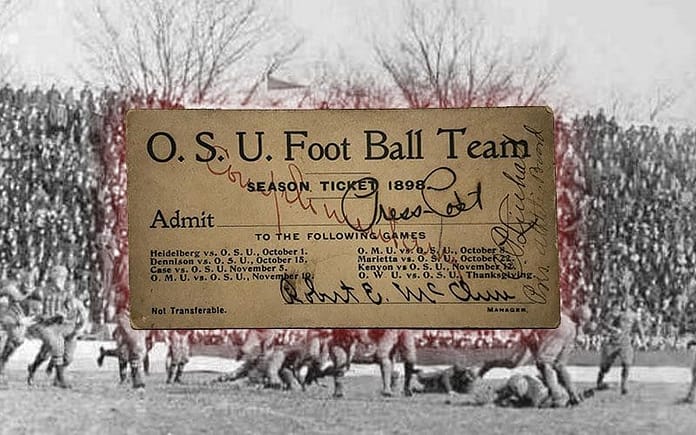 O. S. U. Foot Ball Team
SEASON TICKET 1898
Complimentary
Press-Post
Admit
TO THE FOLLOWING GAMES
Heidelberg vs. O. S. U., October 1.
Dennison vs. O. S. U., October 15.
Case vs. O. S. U. November 5.
O. M. U. vs. O. S. U., November
O. M. U. vs. O. S. U., October 8.
Marietta vs. O. S. U., October 22.
Kenyon vs O. S. U., November 12.
O. W. U vs. O. S. U., Thanksgiving.
Robert E.
Not Transferable.
MANAGER.